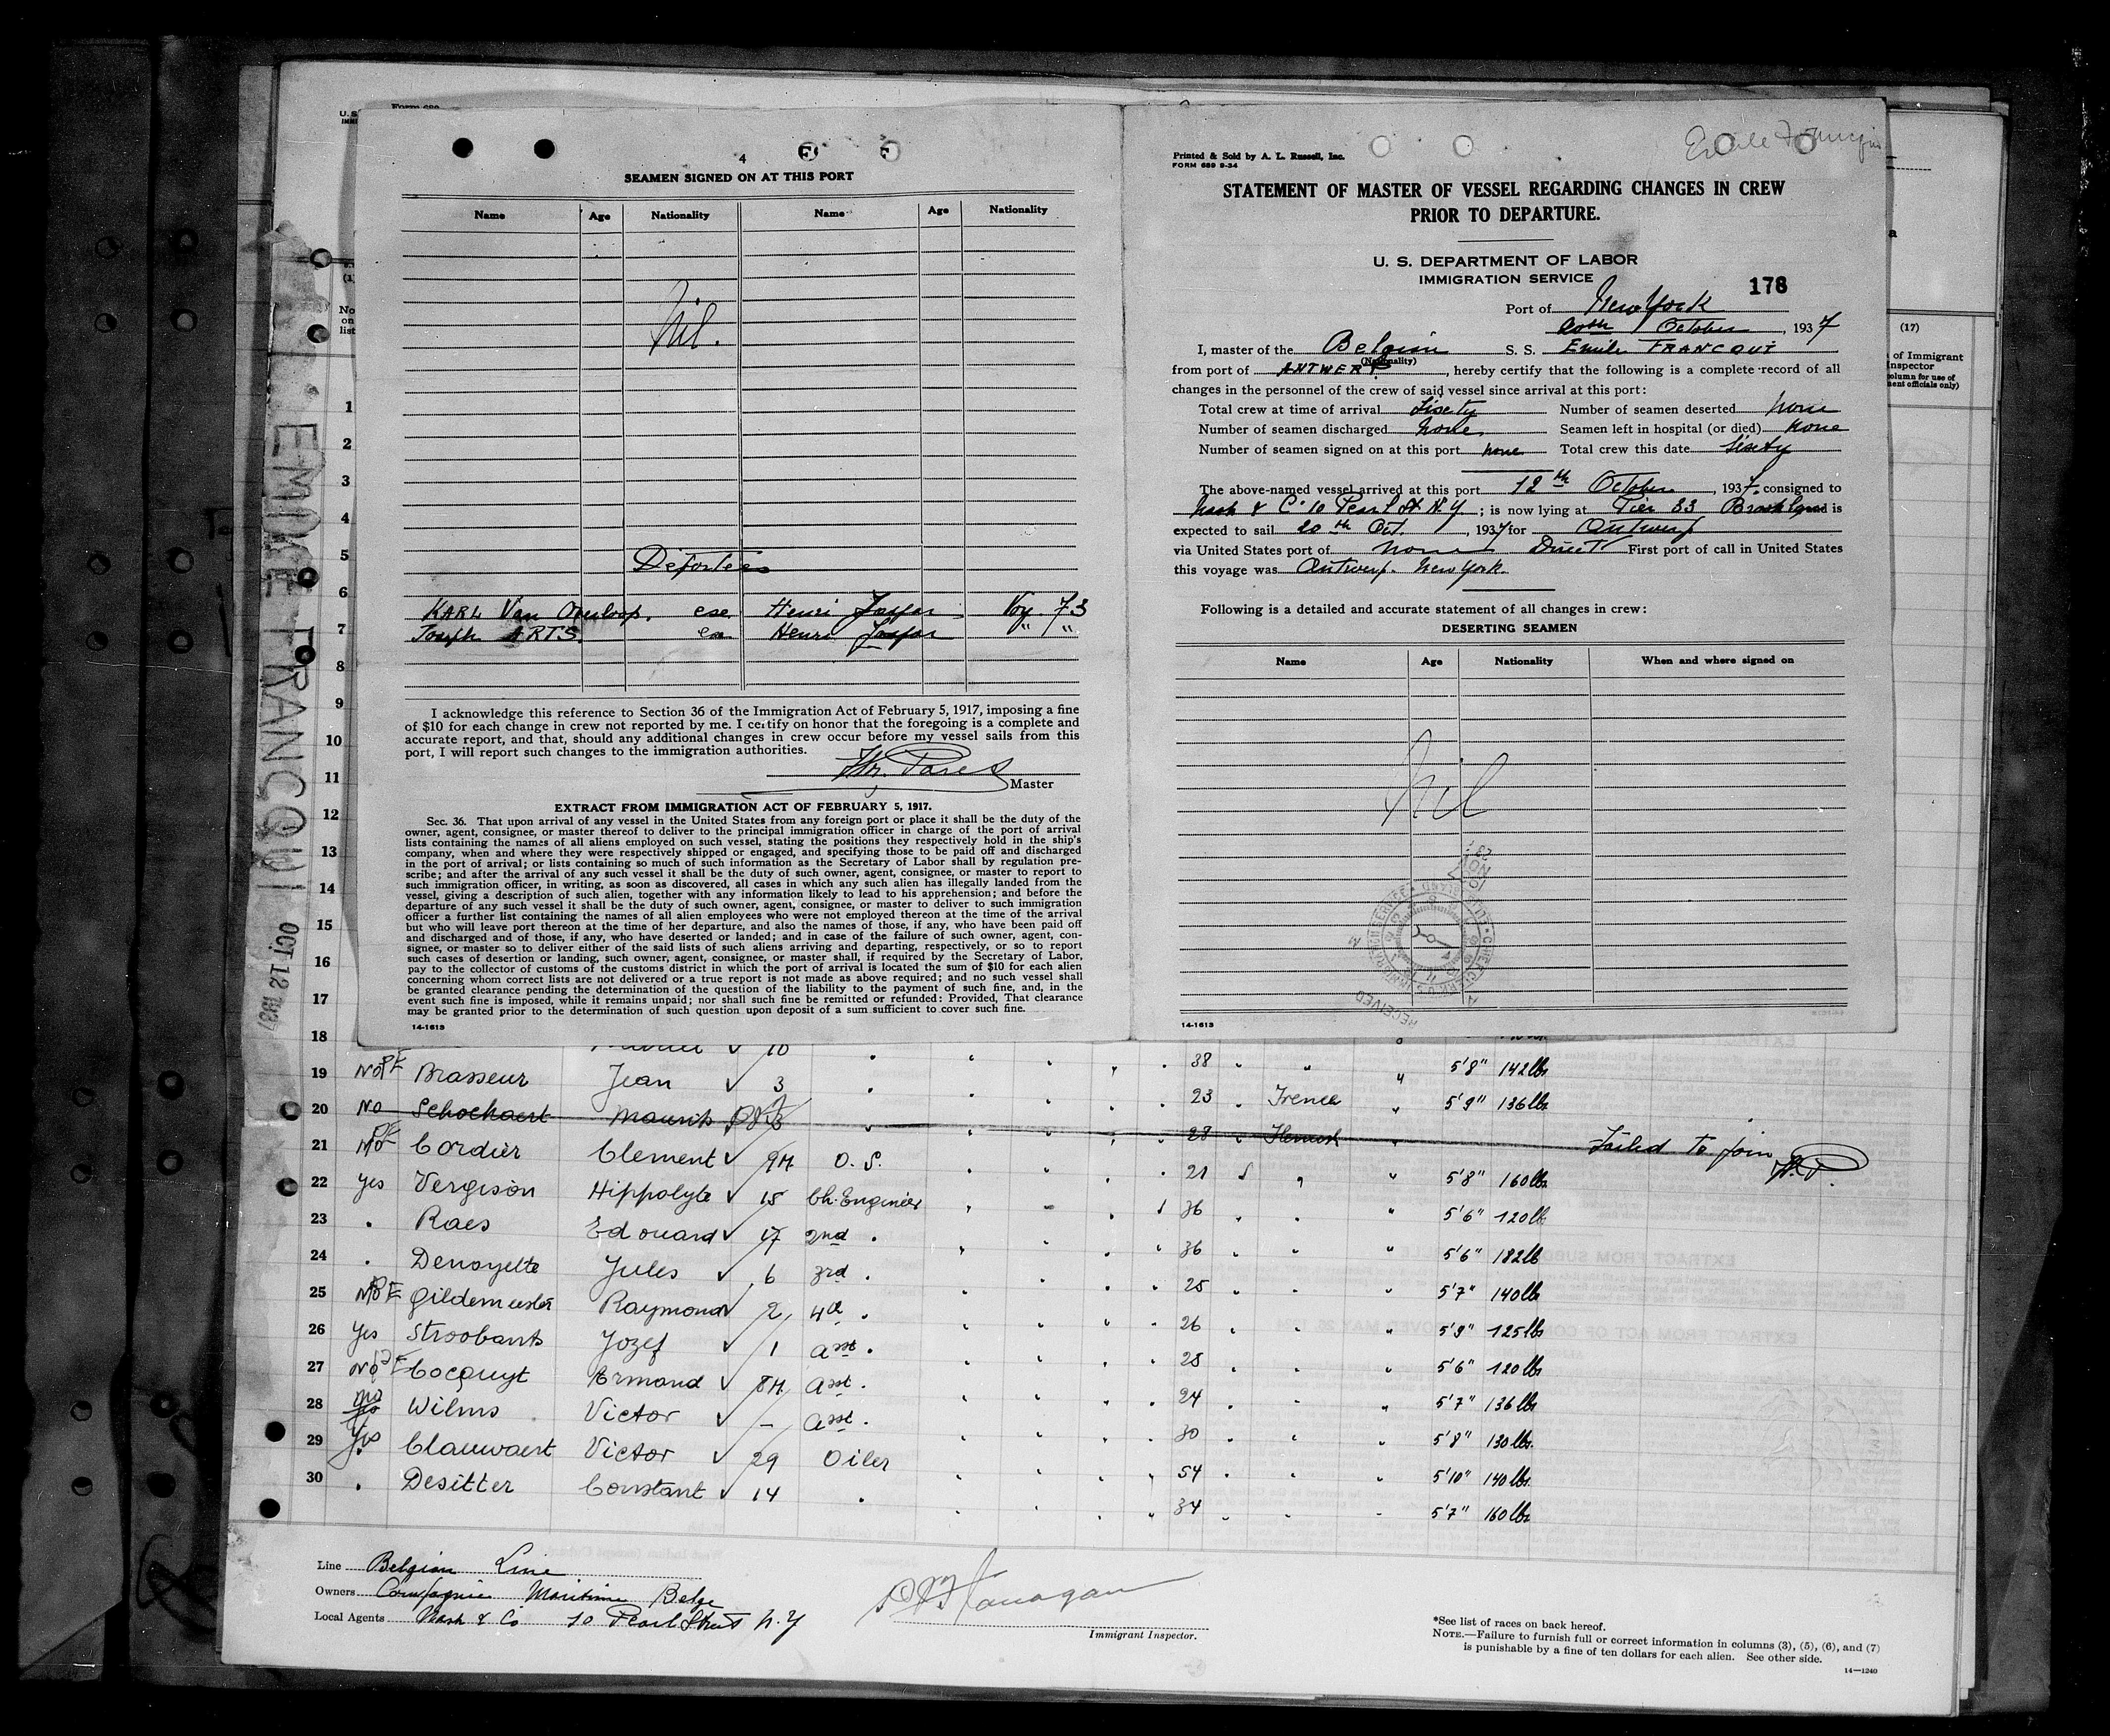 4
SEAMEN SIGNED ON AT THIS PORT
Name Age Nationality Name Age Nationality
Nil.
Deportees
KARL Van Overloop. exe Henri Jaspar Voy. 73
Joseph ARTS. ex Henri Jaspar " "
I acknowledge this reference to Section 36 of the Immigration Act of February 5, 1917, imposing a fine
of $10 for each change in crew not reported by me. I certify on honor that the foregoing is a complete and
accurate report, and that, should any additional changes in crew occur before my vessel sails from this
port, I will report such changes to the immigration authorities.
Master
EXTRACT FROM IMMIGRATION ACT OF FEBRUARY 5, 1917.
Sec. 36. That upon arrival of any vessel in the United States from any foreign port or place it shall be the duty of the
owner, agent, consignee, or master thereof to deliver to the principal immigration officer in charge of the port of arrival
lists containing the names of all aliens employed on such vessel, stating the positions they respectively hold in the ship's
company, when and where they were respectively shipped or engaged, and specifying those to be paid off and discharged
in the port of arrival; or lists containing so much of such information as the Secretary of Labor shall by regulation pre-
scribe; and after the arrival of any such vessel it shall be the duty of such owner, agent, consignee, or master to report to
such immigration officer, in writing, as soon as discovered, all cases in which any such alien has illegally landed from the
vessel, giving a description of such alien, together with any information likely to lead to his apprehension; and before the
departure of any such vessel it shall be the duty of such owner, agent, consignee, or master to deliver to such immigration
officer a further list containing the names of all alien employees who were not employed thereon at the time of the arrival
but who will leave port thereon at the time of her departure, and also the names of those, if any, who have been paid off
and discharged and of those, if any, who have deserted or landed; and in case of the failure of such owner, agent, con-
signee, or master so to deliver either of the said lists of such aliens arriving and departing, respectively, or so to report
such cases of desertion or landing, such owner, agent, consignee, or master, shall, if required by the Secretary of Labor,
pay to the collector of customs of the customs district in which the port of arrival is located the sum of $10 for each alien
concerning whom correct lists are not delivered or a true report is not made as above required; and no such vessel shall
be granted clearance pending the determination of the question of the liability to the payment of such fine, and, in the
event such fine is imposed, while it remains unpaid; nor shall such fine be remitted or refunded: Provided, That clearance
may be granted prior to the determination of such question upon deposit of a sum sufficient to cover such fine.
14-1613
Printed & Sold by A. L. Russell, Inc.
FORM 689 9-34
STATEMENT OF MASTER OF VESSEL REGARDING CHANGES IN CREW
PRIOR TO DEPARTURE.
U. S. DEPARTMENT OF LABOR
IMMIGRATION SERVICE
178
Port of New York
20th October, 1937
I, master of the Belgian S. S. Emile FRANCQUI
(Nationality)
from port of ANTWERP, hereby certify that the following is a complete record of all
changes in the personnel of the crew of said vessel since arrival at this port:
Total crew at time of arrival Sixty Number of seamen deserted none
Number of seamen discharged none Seamen left in hospital (or died) none
Number of seamen signed on at this port none Total crew this date Sixty
The above-named vessel arrived at this port 12th October, 1937, consigned to
Nash & Co 10 Pearl St N.Y.; is now lying at Pier 33 Brooklyn and is
expected to sail 20th Oct., 1937 for Antwerp
via United States port of none Direct First port of call in United States
this voyage was Antwerp. New York.
Following is a detailed and accurate statement of all changes in crew:
DESERTING SEAMEN
Name Age Nationality When and where signed on
Nil
14-1613
EMILE FRANCQUI OCT 12 1937
(17)
of Immigrant
Inspector
1
2
3
4
5
6
7
8
9
10
11
12
13
14
15
16
17
18 10 38 " " " 5'8" 142 lbs
19 No Brasseur Jean 3 23 " French " 5'9" 136 lbs
20 No Schockaert Maurits 28 " Flemish " Failed to join
21 No Cordier Clement 9M O. S. 21 5'8" 160 lbs
22 Yes Vergison Hippolyte 15 Ch. Engineer 36 5'6" 120 lb
23 " Raes Edouard 17 2nd " 36 5'6" 182 lb
24 " Denoyette Jules 6 3rd " 25 5'7" 140 lb
25 No Gildemeester Raymond 2 4th " 26 5'9" 125 lbs
26 Yes Stroobants Jozef 1 Asst " 28 5'6" 120 lb
27 No Cocquyt Ermond 8M Asst " 24 5'7" 136 lbs
28 no Wilms Victor - Asst " 30 5'8" 130 lbs
29 Yes Clauwaert Victor 29 Oiler 54 5'10" 140 lbs
30 " Desitter Constant 14 " 34 5'7" 160 lbs
Line Belgian Line
Owners Compagnie Maritime Belge
Local Agents Nash & Co 10 Pearl Street N.Y
Immigrant Inspector.
*See list of races on back hereof.
NOTE.—Failure to furnish full or correct information in columns (3), (5), (6), and (7)
is punishable by a fine of ten dollars for each alien. See other side.
14—1240